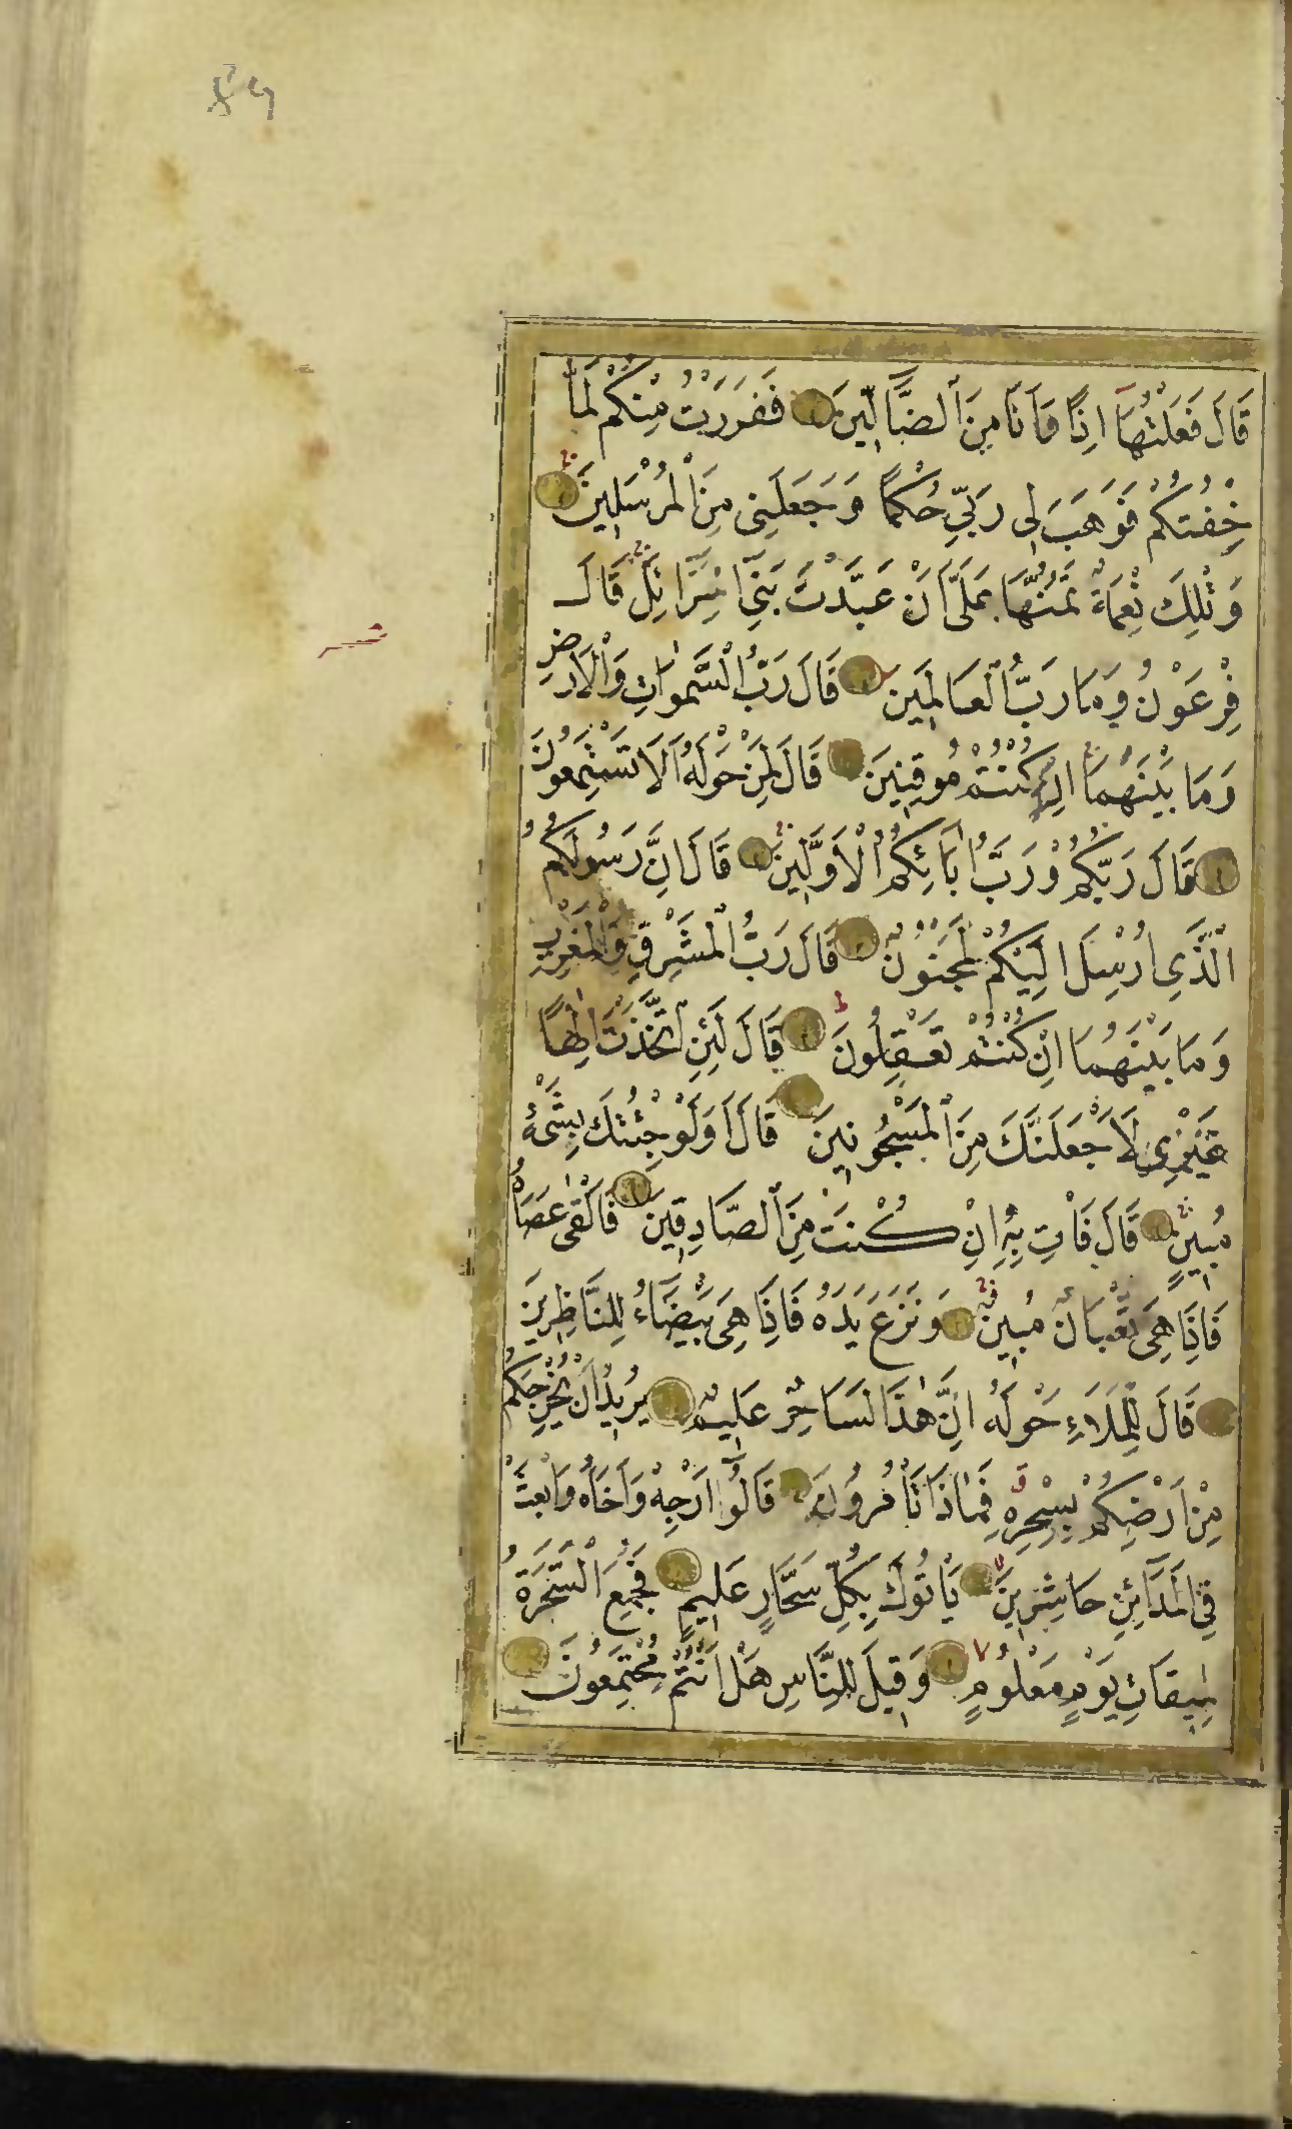 قَالَ فَعَلْتُهَا اِذًا وَاَنَا مِنَ الضَّالِّينَ فَفَرَرْتُ مِنْكُمْ لَمَّا
خِفْتُكُمْ فَوَهَبَ لِى رَبِّي حُكْمًا وَجَعَلَنِى مِنَ الْمُرْسَلِينَ
وَتِلْكَ نِعْمَةٌ تَمُنُّهَا عَلَىَّ اَنْ عَبَّدْتَ بَنِي اِسْرَائِلَ قَالَ
فِرْعَوْنُ وَمَا رَبُّ الْعَالَمِينَ قَالَ رَبُّ السَّمٰوَاتِ وَالْاَرْضِ
وَمَا بَيْنَهُمَا اِنْ كُنْتُمْ مُوقِنِينَ قَالَ لِمَنْ حَوْلَهُ اَلَا تَسْتَمِعُونَ
قَالَ رَبُّكُمْ وَرَبُّ اٰبَائِكُمُ الْاَوَّلِينَ قَالَ اِنَّ رَسُولَكُمُ
الَّذِى اُرْسِلَ اِلَيْكُمْ لَمَجْنُونٌ قَالَ رَبُّ الْمَشْرِقِ وَالْمَغْرِبِ
وَمَا بَيْنَهُمَا اِنْ كُنْتُمْ تَعْقِلُونَ قَالَ لَئِنِ اتَّخَذْتَ اِلٰهًا
غَيْرِى لَاَجْعَلَنَّكَ مِنَ الْمَسْجُونِينَ قَالَ اَوَلَوْ جِئْتُكَ بِشَىْءٍ
مُبِينٍ قَالَ فَاْتِ بِهِ اِنْ كُنْتَ مِنَ الصَّادِقِينَ فَاَلْقٰى عَصَاهُ
فَاِذَا هِىَ ثُعْبَانٌ مُبِينٌ وَنَزَعَ يَدَهُ فَاِذَا هِىَ بَيْضَاءُ لِلنَّاظِرِينَ
قَالَ لِلْمَلَاءِ حَوْلَهُ اِنَّ هٰذَا لَسَاحِرٌ عَلِيمٌ يُرِيدُ اَنْ يُخْرِجَكُمْ
مِنْ اَرْضِكُمْ بِسِحْرِهِ فَمَاذَا تَاْمُرُونَ قَالُوا اَرْجِهْ وَاَخَاهُ وَابْعَثْ
فِي الْمَدَائِنِ حَاشِرِينَ يَاْتُوكَ بِكُلِّ سَحَّارٍ عَلِيمٍ فَجُمِعَ السَّحَرَةُ
لِمِيقَاتِ يَوْمٍ مَعْلُومٍ وَقِيلَ لِلنَّاسِ هَلْ اَنْتُمْ مُجْتَمِعُونَ